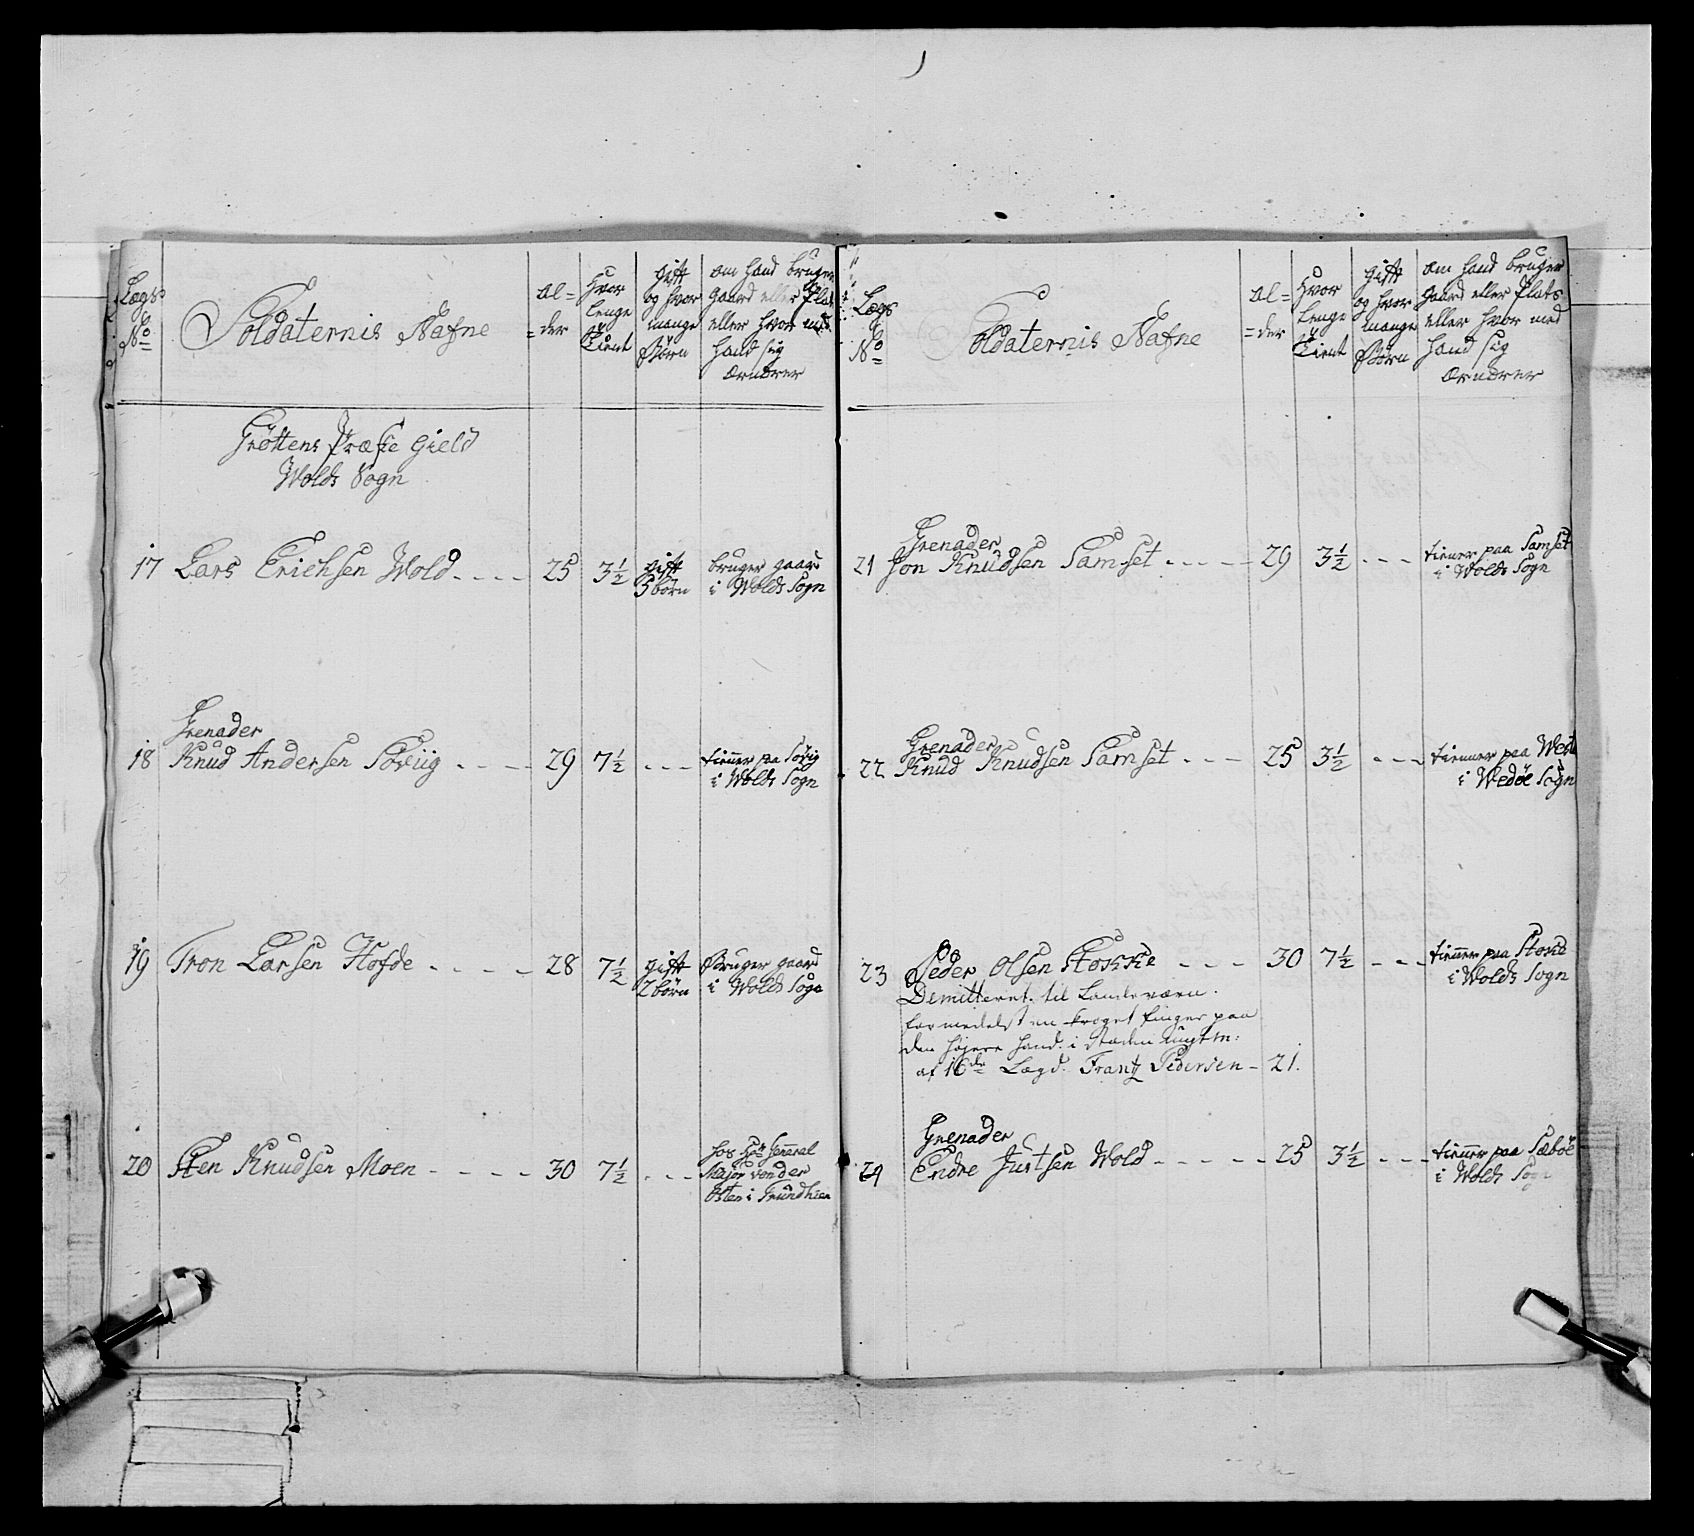 Lægs
No
Soldaternis Nafne
Al=
=der
Hvor
lenge
Tient
gift
og hvor
mange
Børn
om hand bruger
gaard eller Plads
eller hvor med
hand sig
Ærnærer
Grøttens Præste Gield
Wolds Sogn
17 Lars Erichsen Wold - - - - 25 3½ gift bruger gaard
5 børn i Wolds Sogn
Grenader
18 Knud Andersen Sørviig - - - - 29 7½ - - - tienner pa Sørvig
i Wolds Sogn
19 Tron Larsen Hofde - - - - 28 7½ gift Bruger gaard
2 børn i Wolds Sogn
20 Sten Knudsen Moen - - - - 30 7½ - - - hos Hr General
Major von der
Osten i Trundhiem
Lægs
No
Soldaternis Nafne
Al=
=der
Hvor
lenge
Tient
gift
og hvor
mange
Børn
om hand bruger
gaard eller Plats
eller hvor med
hand sig
Ærnærer
Grenader
21 Jon Knudsen Samset - - - - - 29 3½ - - - tiener paa Samset
i Wolds Sogn
Grenader
22 Knud Knudsen Samset - - - - 25 3½ - - - tienner paa
i Wedøe Sogn
23 Peder Olsen Stokke - - - - 30 7½ - - - tienner paa Stokke
i Wolds Sogn
Demitteret til Landeværn
formedelst en kroget finger paa
den højere hand. i steden ungt m:
af 16de Lægd. Frantz Pedersen - 21.
Grenader
24 Endre Justsen Wold - - - - - 25 3½ - - - tienner paa Sæbøe
i Wolds Sogn